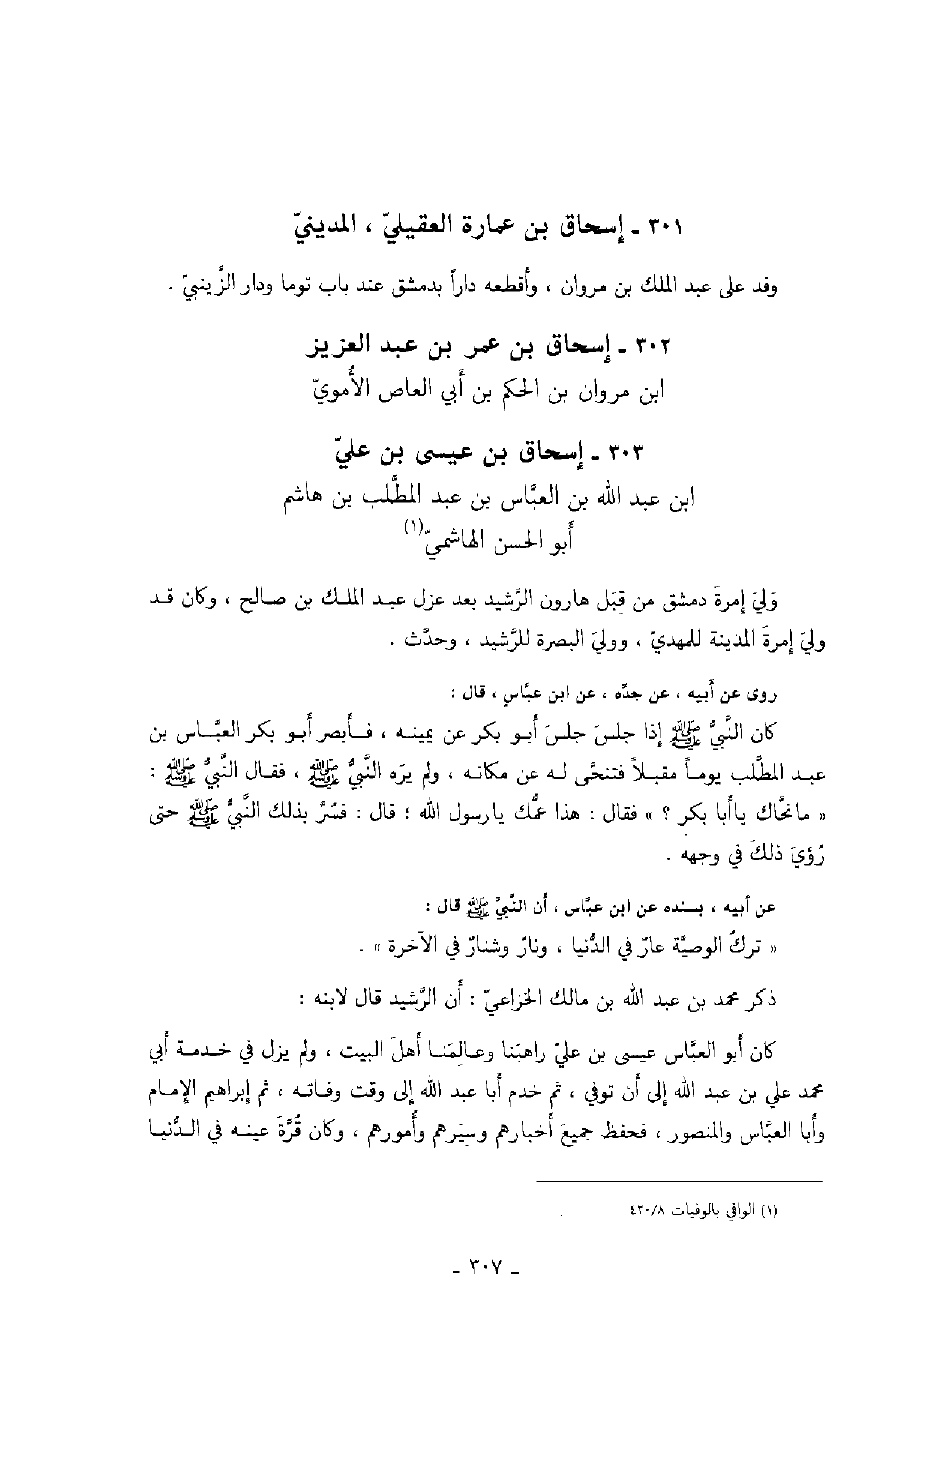 ٣٠١ ـ إسحاق بن عمارة العقيليّ ، المدينيّ
وفد على عبد الملك بن مروان ، وأقطعه داراً بدمشق عند باب توما ودار الزَّينبيّ .
٣٠٢ ـ إسحاق بن عمر بن عبد العزيز
ابن مروان بن الحكم بن أبي العاص الأمويّ
٣٠٣ ـ إسحاق بن عيسى بن عليّ
ابن عبد الله بن العبَّاس بن عبد المطَّلب بن هاشم
أبو الحسن الهاشميّ(١)
وَلِيَ إمرةَ دمشق من قِبَل هارون الرَّشيد بعد عزل عبـد الملـك بن صـالح ، وكان قـد
وليَ إمرةَ المدينة للمهديّ ، ووليَ البصرة للرَّشيد ، وحدَّث .
روى عن أبيه ، عن جدّه ، عن ابن عبَّاس ، قال :
كان النَّبيُّ ﷺ إذا جلسَ جلسَ أبـو بكر عن يمينـه ، فـأبصر أبـو بكر العبَّـاس بن
عبـد المطَّلب يومـاً مقبـلاً فتنحَّى لـه عن مكانـه ، ولم يرَه النَّبيُّ ﷺ ، فقـال النَّبيُّ ﷺ :
« مانحَّاك ياأبا بكر ؟ » فقال : هذا عمُّك يارسول الله ؛ قال : فسُرَّ بذلك النَّبيُّ ﷺ حتى
رُؤيَ ذلكَ في وجهه .
عن أبيه ، بسنده عن ابن عبَّاس ، أن النَّبيَّ ﷺ قال :
« تركُ الوصيَّة عارٌ في الدُّنيا ، ونارٌ وشنارٌ في الآخرة » .
ذكر محمد بن عبد الله بن مالك الخزاعيّ : أن الرَّشيد قال لابنه :
كان أبو العبَّاس عيسى بن عليّ راهبَنا وعـالِمَنـا أهلَ البيت ، ولم يزل في خـدمـة أبي
محمد علي بن عبد الله إلى أن توفي ، ثم خدم أبا عبد الله إلى وقت وفـاتـه ، ثم إبراهيم الإمـام
وأبا العبَّاس والمنصور ، فحفظ جميعَ أخبارهم وسيَرهم وأُمورهم ، وكان قُرَّةَ عينـه في الـدُّنيـا
(١) الوافي بالوفيات ٤٢٠/٨
ـ ٣٠٧ ـ